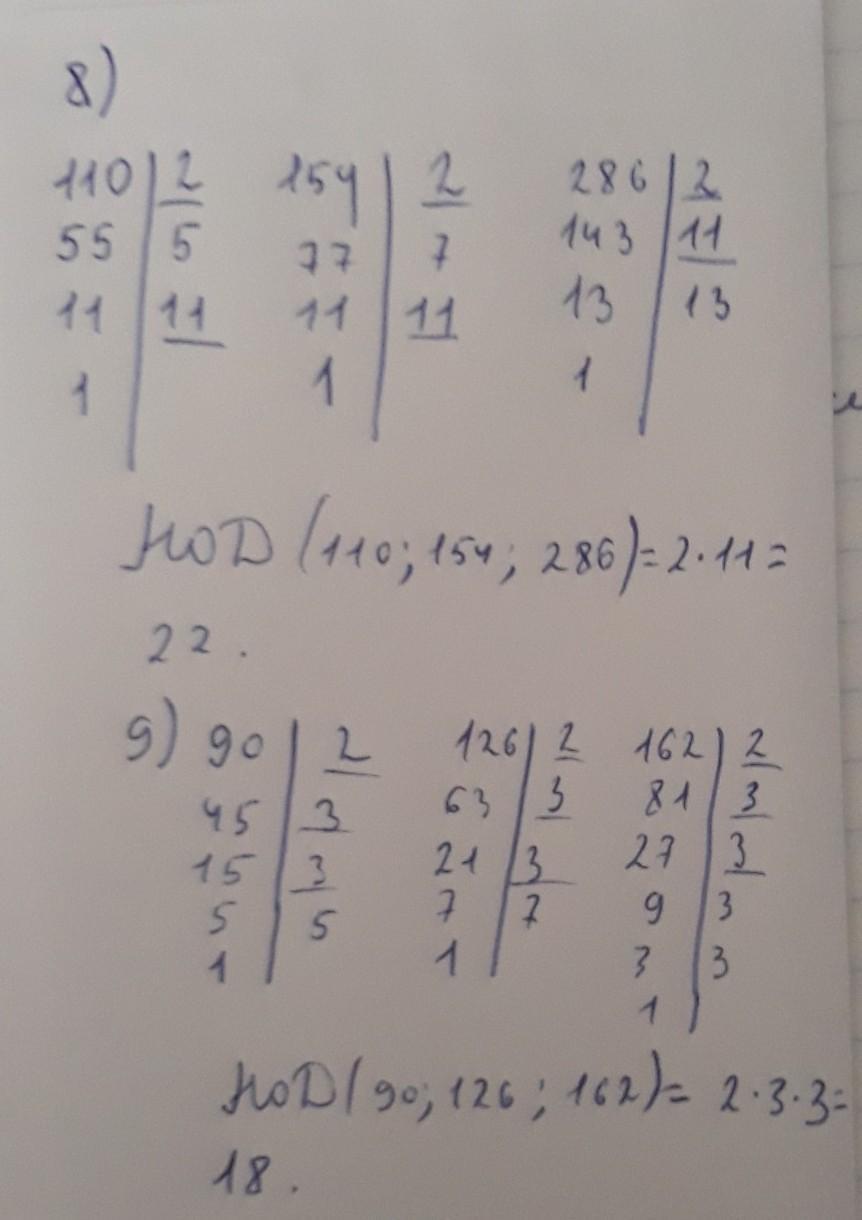 8)
110 | 2 154 | 2 286 | 2
55 | 5 77 | 7 143 | 11
11 | 11 11 | 11 13 | 13
1 | 1 | 1 |
НОД (110; 154; 286) = 2·11 =
22.
9) 90 | 2 126 | 2 162 | 2
45 | 3 63 | 3 81 | 3
15 | 3 21 | 3 27 | 3
5 | 5 7 | 7 9 | 3
1 | 1 | 3 | 3
1 |
НОД (90; 126; 162) = 2·3·3 =
18.